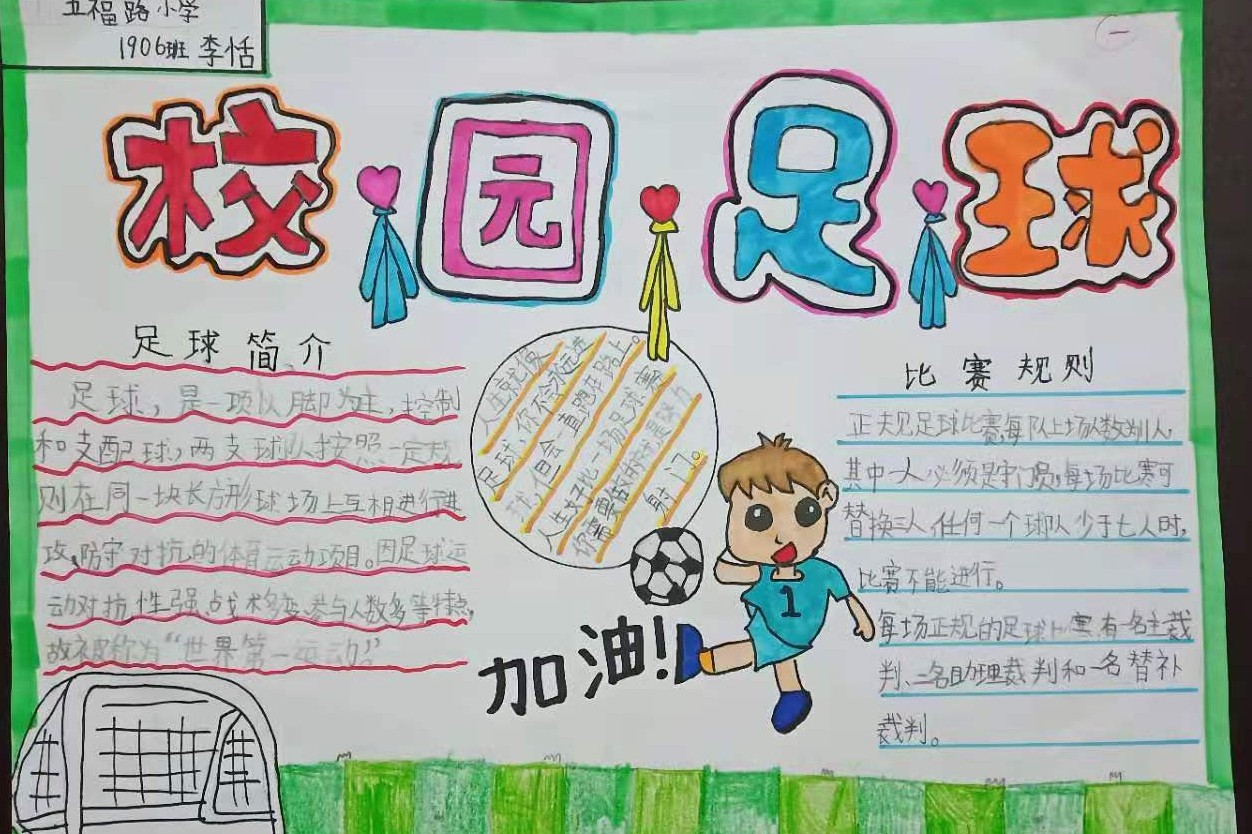 五福路小学
1906班 李恬
一
校园足球
足球简介
足球，是一项以脚为主，控制
和支配球，两支球队按照一定规
则在同一块长方形球场上互相进行进
攻、防守对抗的体育运动项目。因足球运
动对抗性强、战术多变、参与人数多等特点，
故被称为“世界第一运动”
人生就像
足球，你不会永远进
球，但会一直跑在路上。
人生好比一场足球赛
你需要的
射门。
比赛规则
正规足球比赛每队上场人数为11人，
其中一人必须是守门员，每场比赛可
替换三人，任何一个球队少于七人时，
比赛不能进行。
每场正规的足球比赛，有一名主裁
判、二名助理裁判和一名替补
裁判。
加油！
1